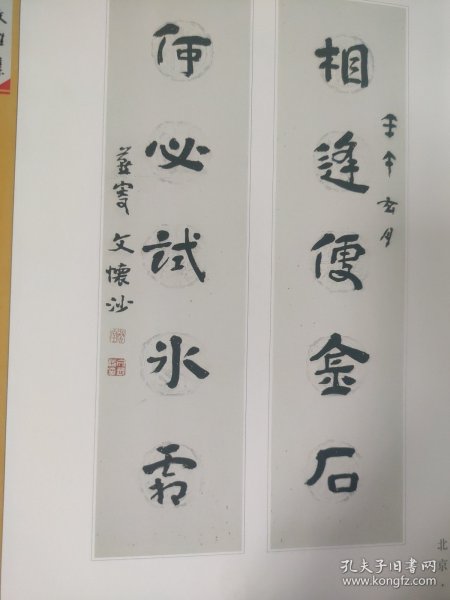 相逢便金石
壬午玄月
何必试冰霜
燕叟 文怀沙
北京·
孔夫子旧书网
www.kongfz.com